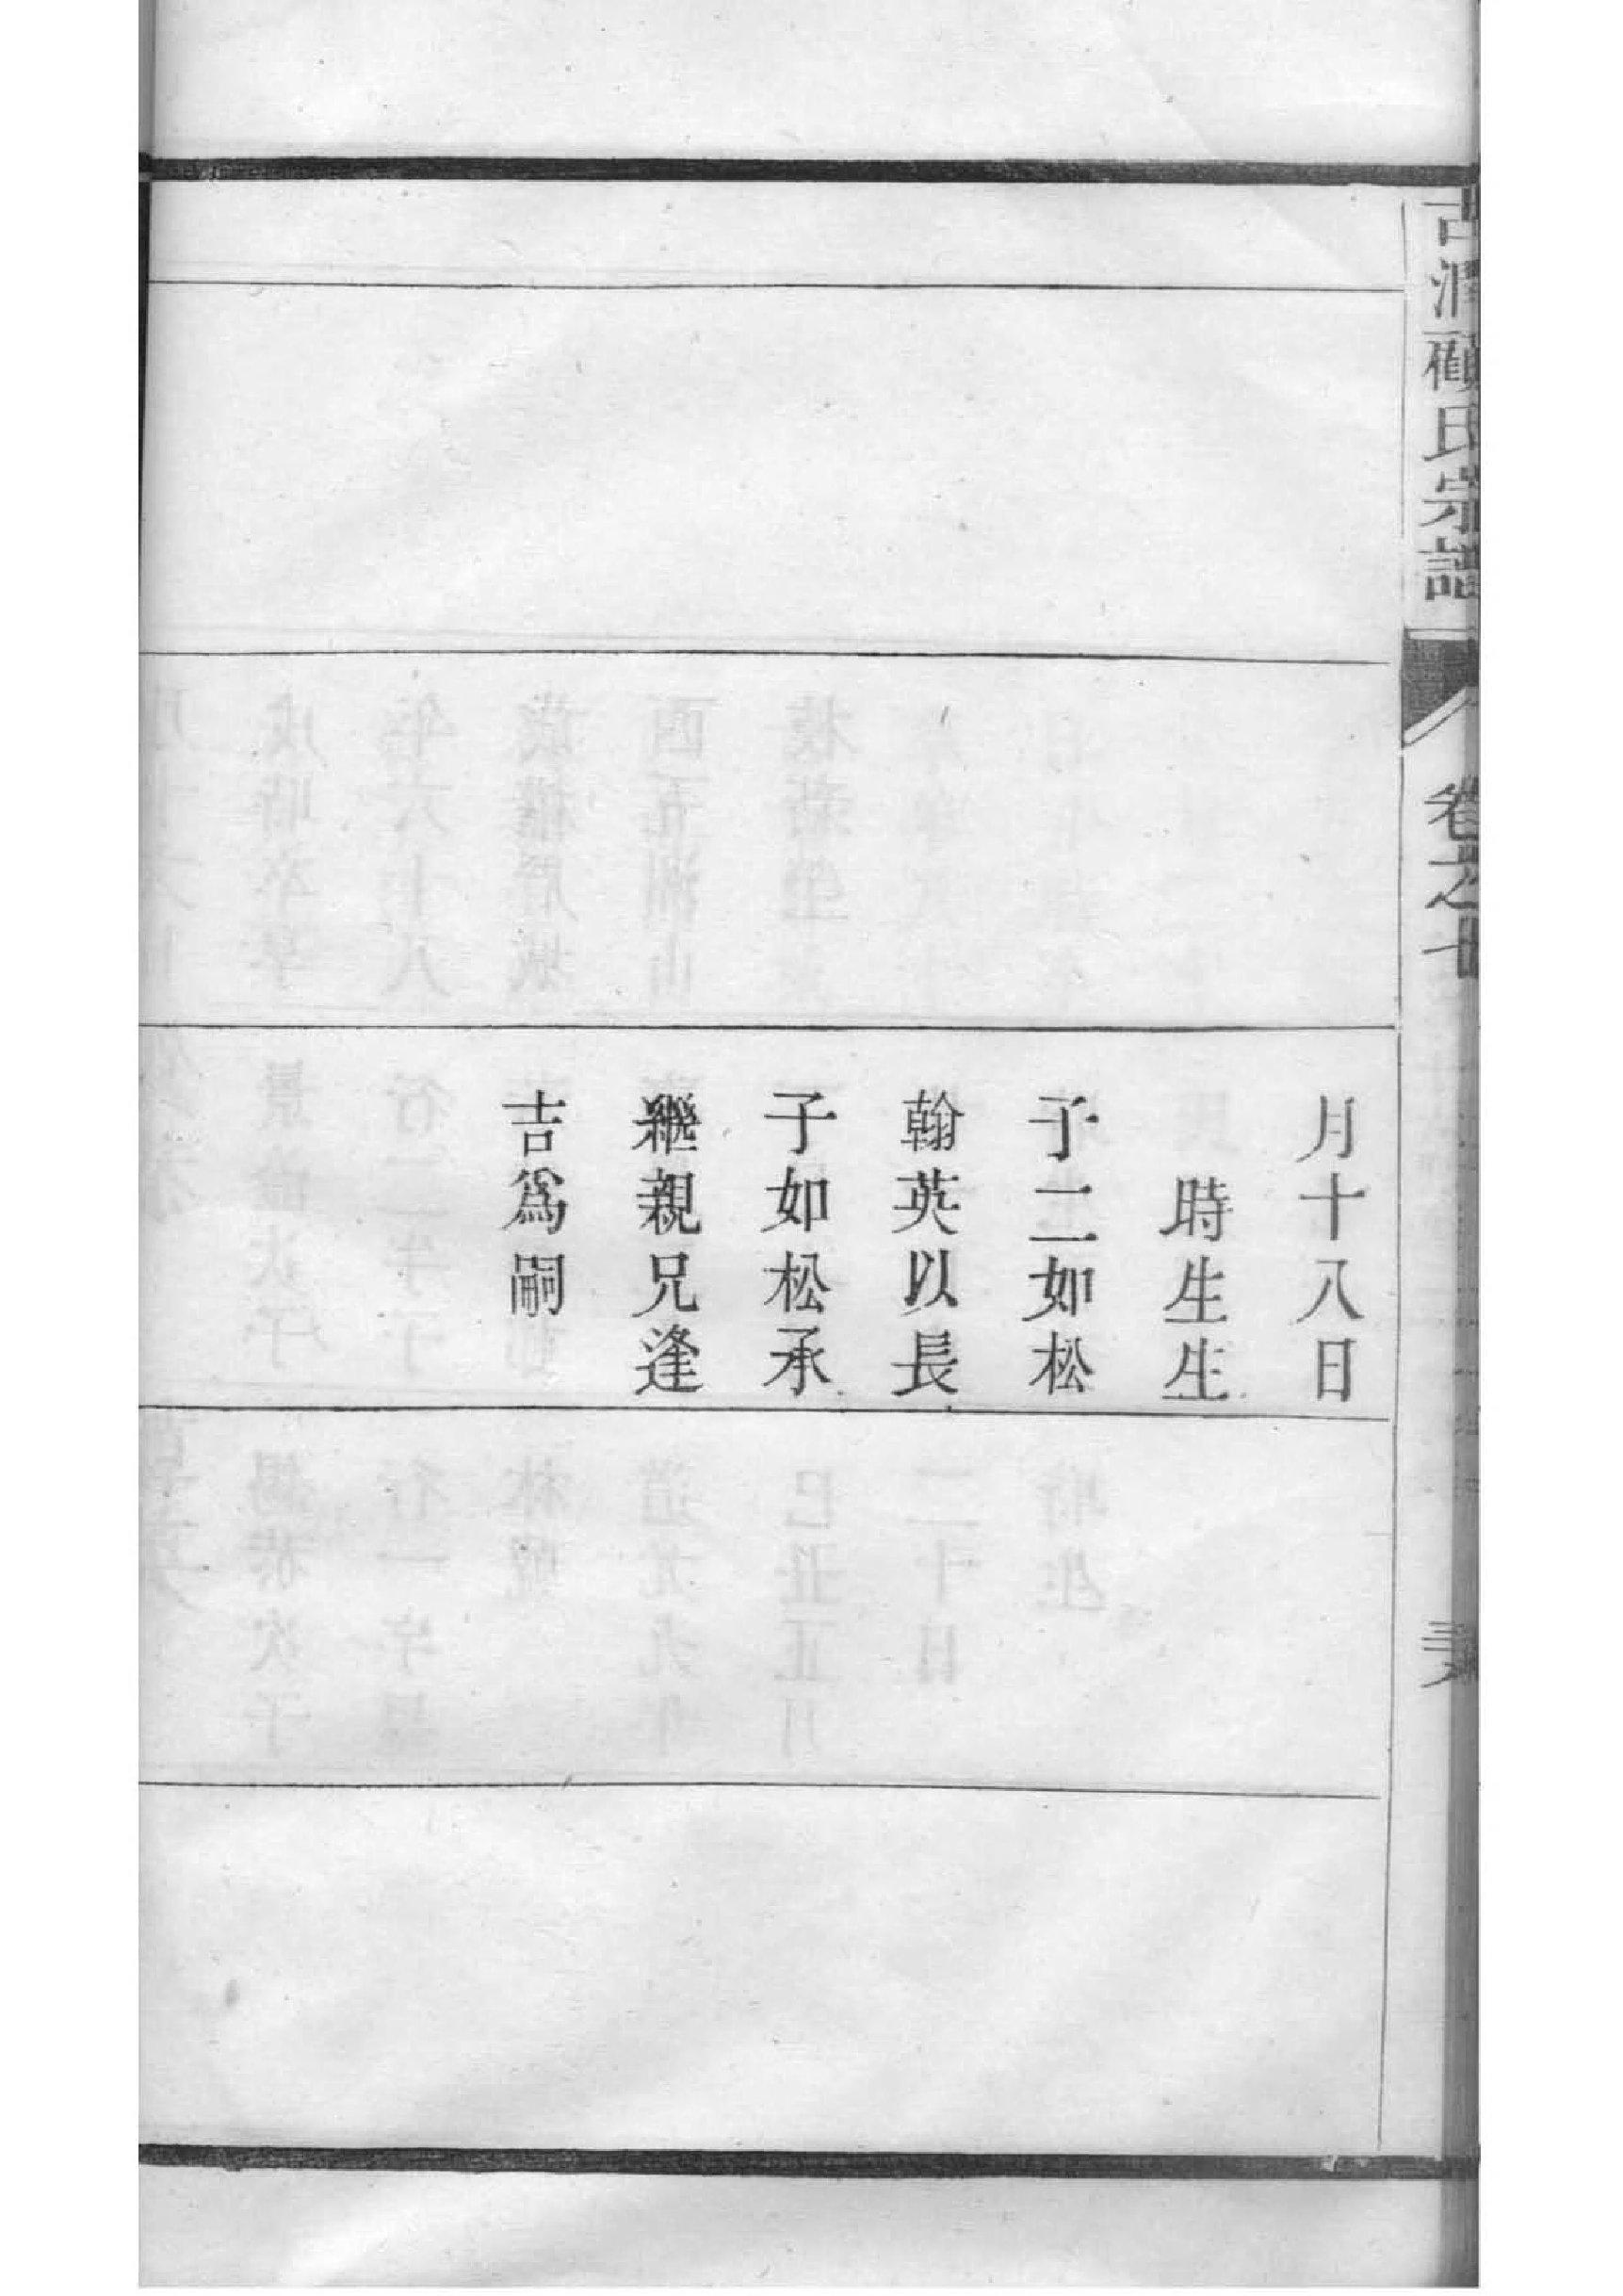 古潤顧氏宗譜
卷之
月十八日
時生生
子二如松
翰英以長
子如松承
繼親兄逢
吉爲嗣